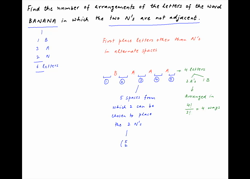 Find the number of arrangements of the letters of the word
BANANA in which the two N's are not adjacent.
1 B
3 A
2 N
6 letters
First place letters other than N's
in alternate spaces
B A A A → 4 letters
① ② ③ ④ ⑤
3 A's 1 B
Arranged in
4!/3! = 4 ways
5 spaces from
which 2 can be
chosen to place
the 2 N's